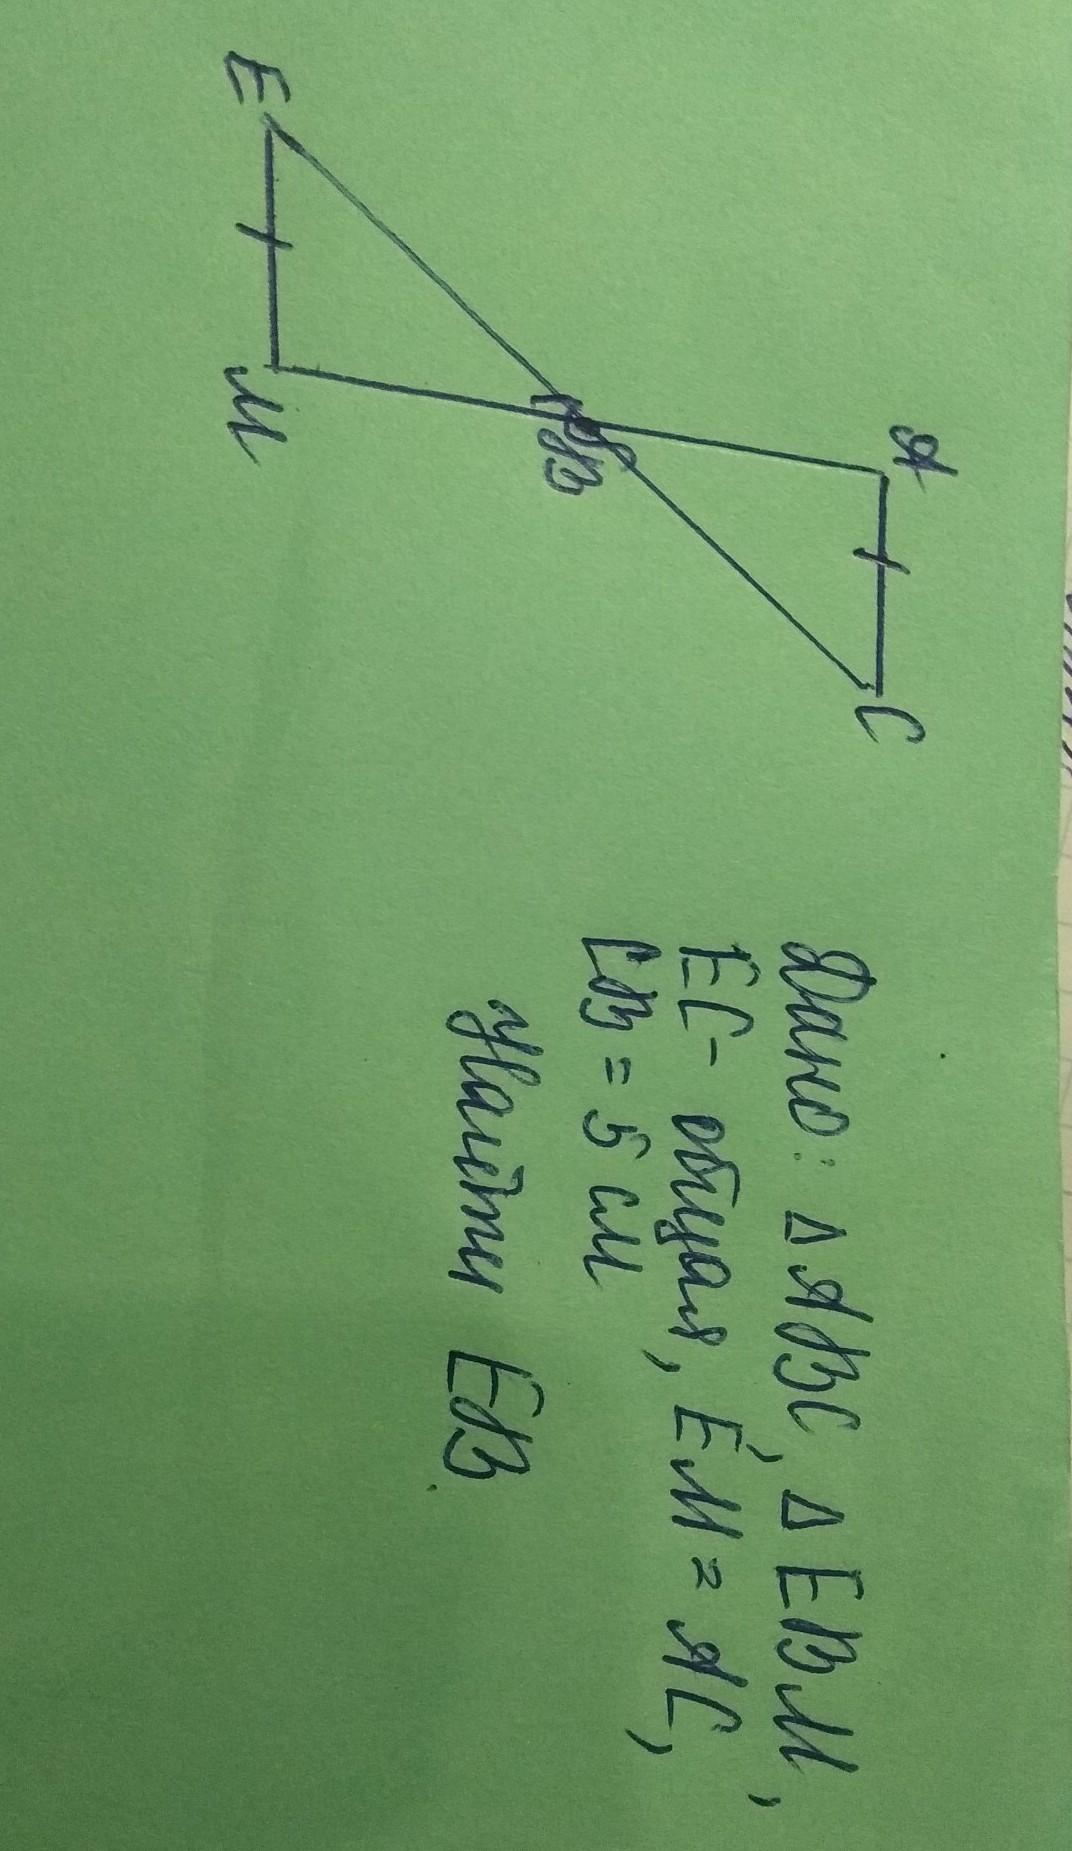 E
M
B
A
C
Дано: △ ABC, △ EBM,
EC - общая, EM = AC,
CB = 5 см
Найти EB.